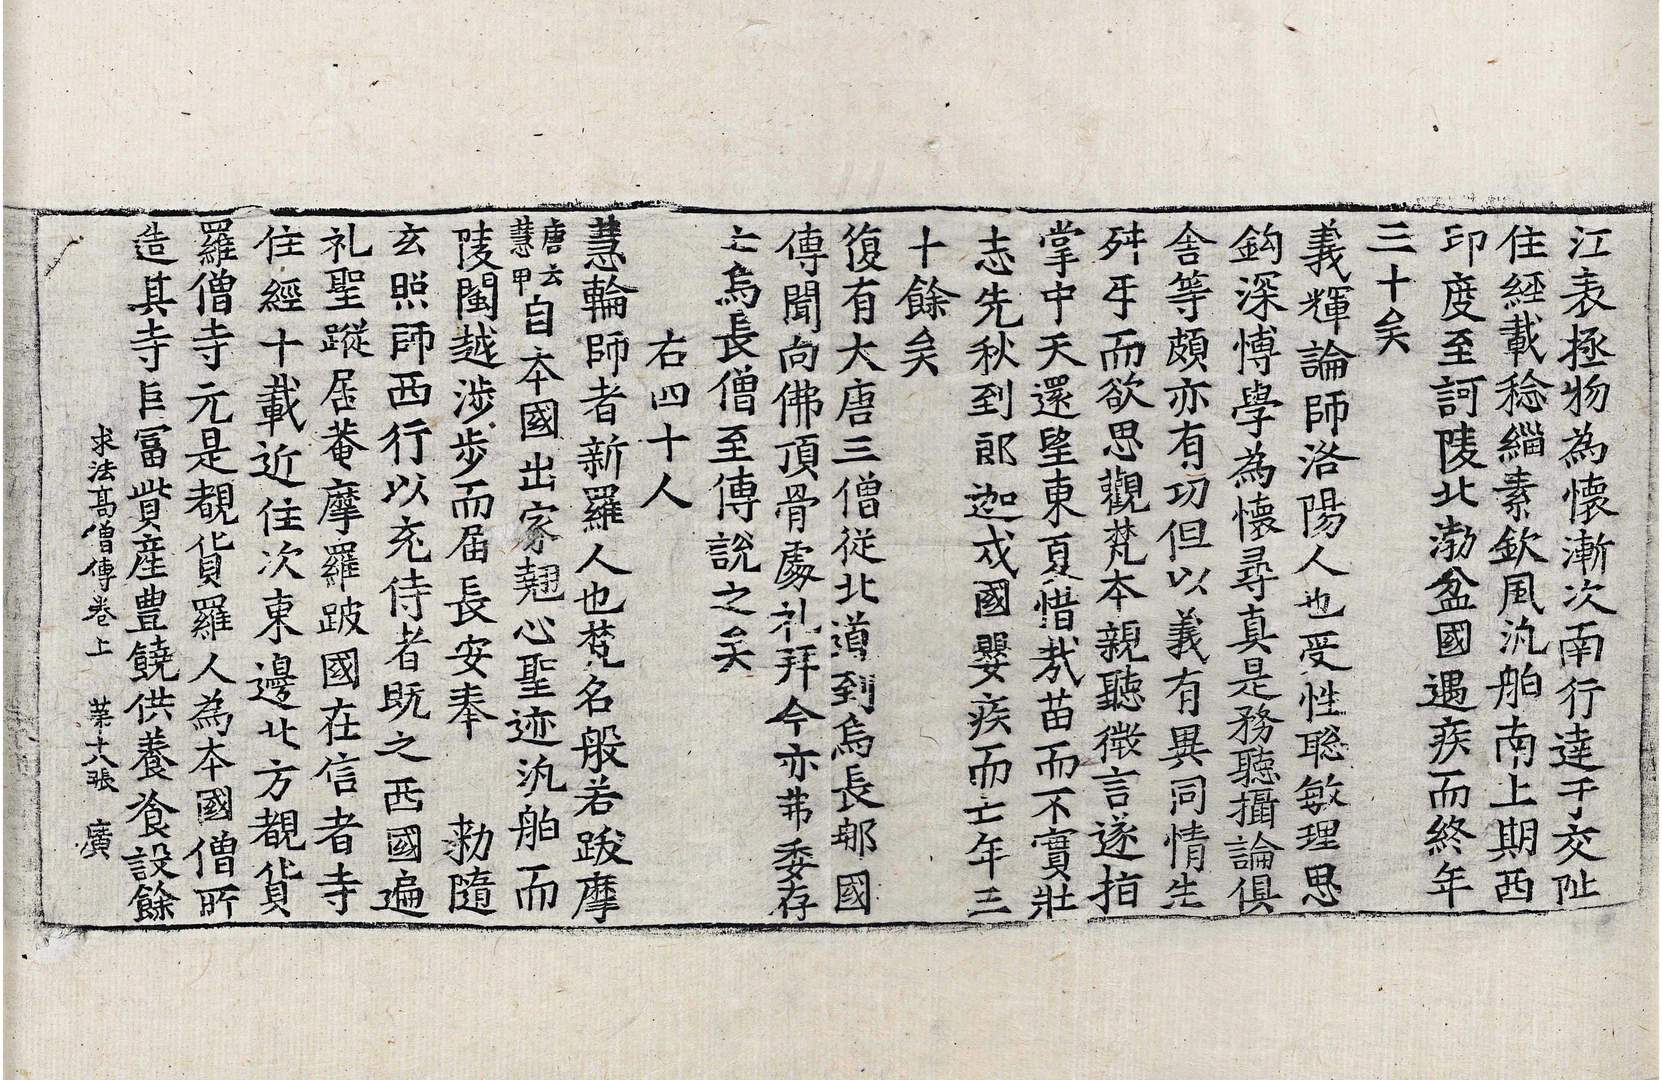 江表拯物為懷漸次南行達于交阯
住經載稔緇素欽風汎舶南上期西
印度至訶陵北渤盆國遇疾而終年
三十矣
義輝論師洛陽人也受性聡敏理思
鈎深博學為懷尋真是務聽攝論俱
舍等頗亦有功但以義有異同情生
舛互而欲思觀梵本親聽微言遂指
掌中天還望東夏惜哉苗而不實壯
志先秋到郎迦戍國嬰疾而亡年三
十餘矣
復有大唐三僧従北道到烏長郍國
傳聞向佛頂骨處礼拜今亦弗委存
亡烏長僧至傳說之矣
右四十人
慧輪師者新羅人也梵名般若跋摩
唐云
慧甲
自本國出家翹心聖迹汎舶而
陵閩越涉步而届長安奉 勑隨
玄照師西行以充侍者既之西國遍
礼聖蹤居菴摩羅跛國在信者寺
住經十載近住次東邊北方覩貨
羅僧寺元是覩貨羅人為本國僧所
造其寺巨冨貲産豊饒供養飡設餘
求法髙僧傳卷上 苐十六張 廣